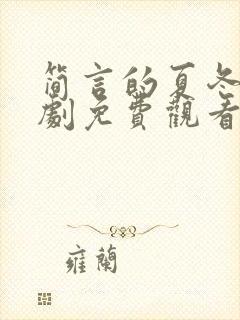 简言的夏冬
劇免費觀看
雍蘭